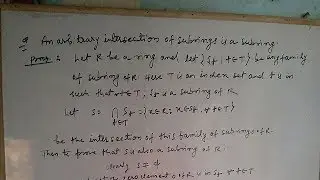 Q An arbitrary intersection of subrings is a subring.
Proof: Let R be a ring and let {St, t∈T} be any family
of subrings of R. Here T is an index set and t is
such that ∀t∈T, St is a subring of R.
Let S = ⋂ St = {x∈R; x∈St, ∀ t∈T}
t∈T
be the intersection of this family of subrings of R.
Then to prove that S is also a subring of R.
S ≠ φ
zero element of R is in St